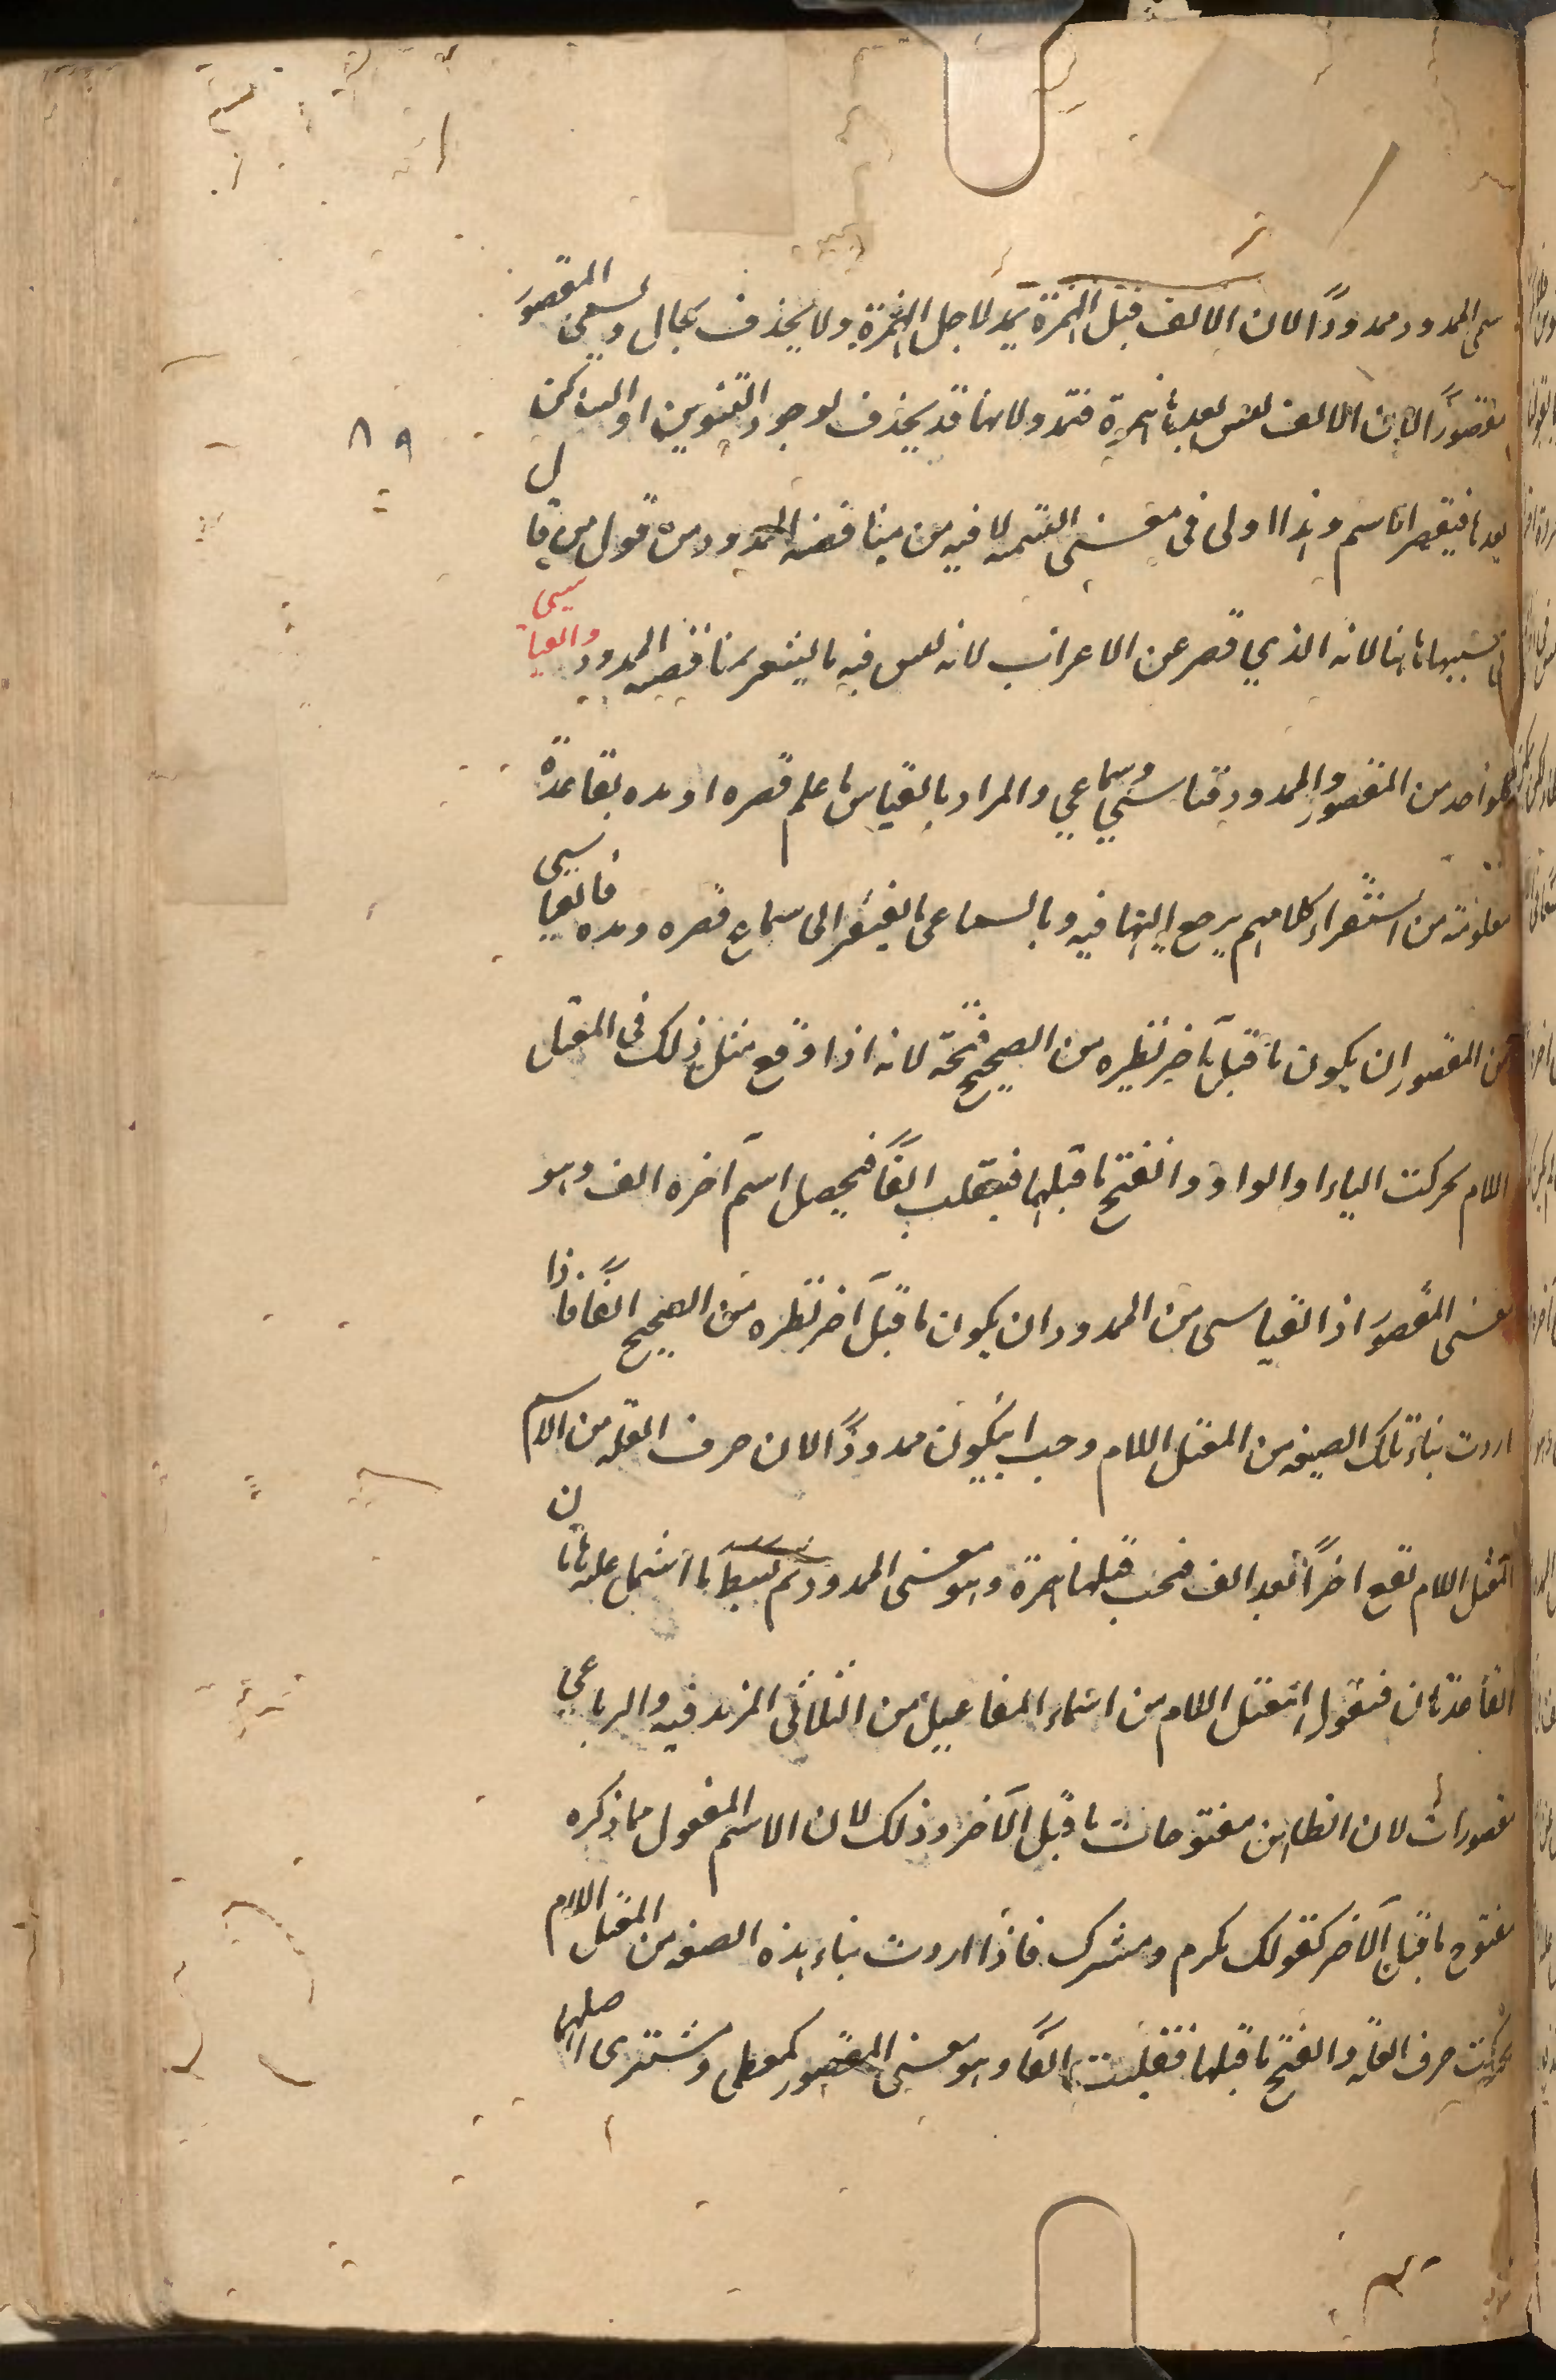 سمى الممدود ممدودًا لان الالف قبل الهمزة يمد لاجل الهمزة ولا يحذف بحال ويسمى المقصور
مقصورًا لان الالف ليس بعدها همزة فتمد ولانها قد يحذف لوجود التنوين او الساكن
بعدها فيقصر الاسم وهذا اولى فى معنى التسمية لما فيه من مناقضة الممدود من قول من قال
فى تسميتها هنا لانه الذي قصر عن الاعراب لانه ليس فيه ما يشعر بمناقضه الممدود والقياسى
كلواحد من المقصور والممدود قياسي وسماعي والمراد بالقياس ما علم قصره او مده بقاعدة
معلومة من استقراء كلامهم يرجع اليها فيه وبالسماعى ما يفتقر الى سماع قصره ومده فالقياسى
من المقصور ان يكون ما قبل آخر نظيره من الصحيح فتحة لانه اذا وقع مثل ذلك فى المعتل
اللام تحركت الياء او الواو وانفتح ما قبلها فيقلب الفًا فيحصل اسم آخره الف وهو
معنى المقصور اذ القياسى من الممدود ان يكون ما قبل آخر نظيره من الصحيح الفًا فاذا
اردت بناء تلك الصيغه من المعتل اللام وجب ان يكون ممدودًا لان حرف العلة من الاسم
المعتل اللام تقع اخرًا بعد الف فتجب قبلها همزة وهو معنى الممدود ثم بسط ما اشتمل عليه هاتان
القاعدتان فنقول المعتل اللام من اسماء المفاعيل من الثلاثى المزيد فيه والرباعي
مقصورات لان نظايرهن مفتوحات ما قبل الآخر وذلك لان الاسم المفعول مما ذكره
مفتوح ما قبل الآخر كقولك مكرم ومشترك فاذا اردت بناء هذه الصيغه من المعتل اللام
تحركت حرف العلة وانفتح ما قبلها فقلبت الفًا وهو معنى المقصور كمعطى ومشترى اصلهما
٨٩